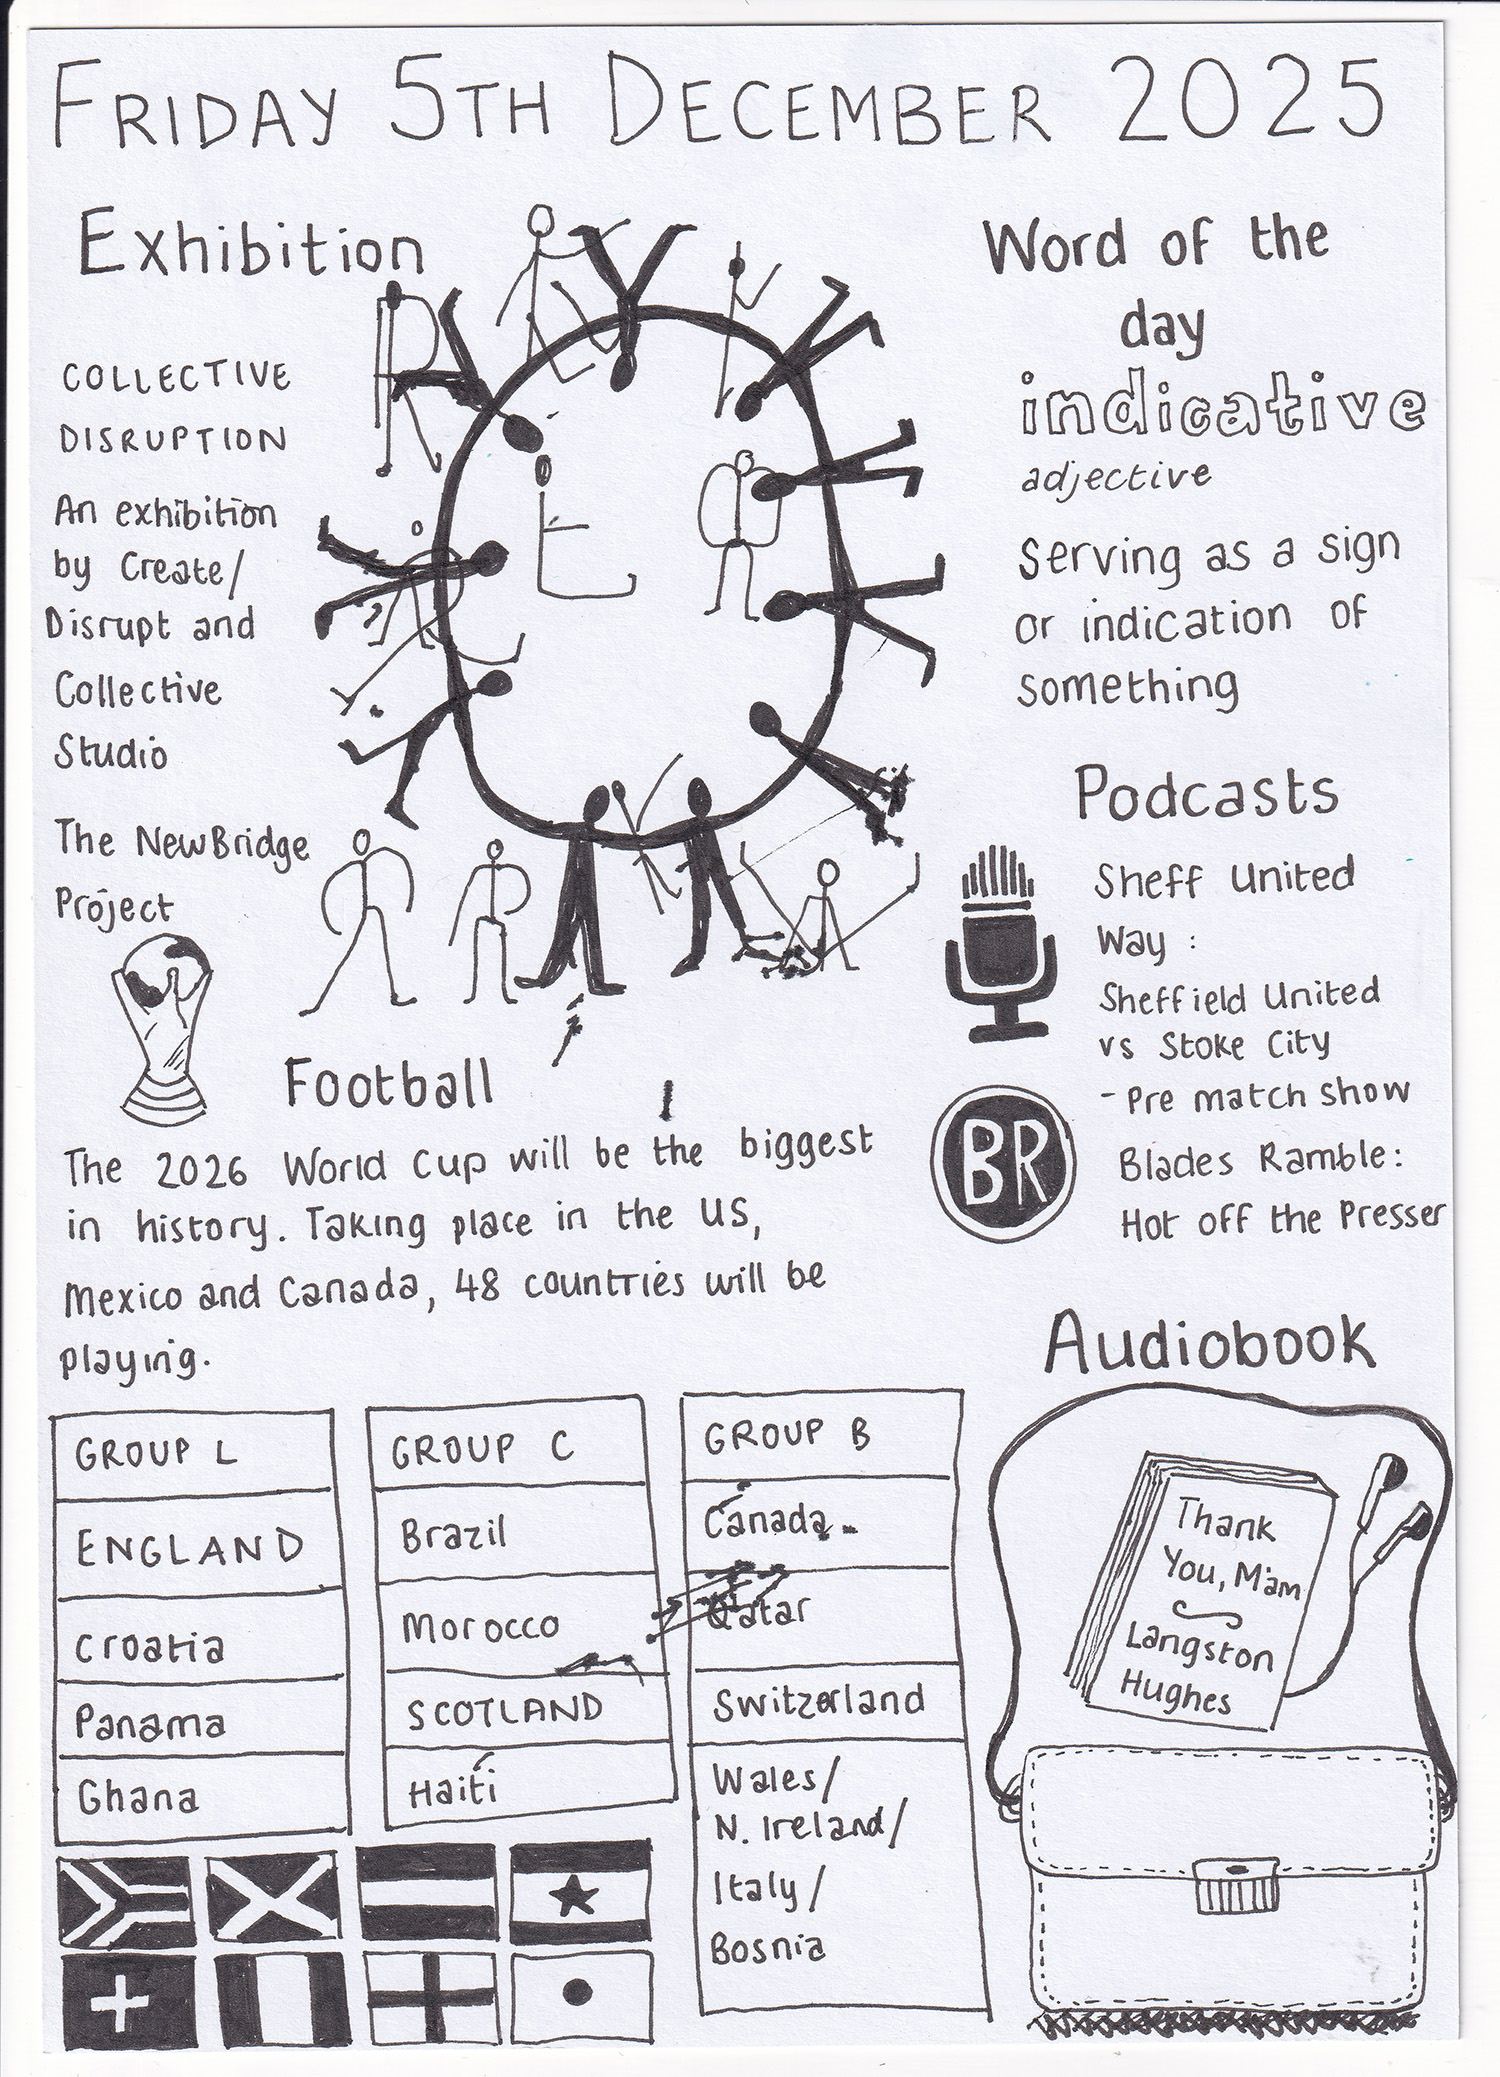 FRIDAY 5TH DECEMBER 2025
Exhibition
COLLECTIVE
DISRUPTION
An exhibition
by Create/
Disrupt and
Collective
Studio
The NewBridge
Project
Word of the
day
indicative
adjective
Serving as a sign
or indication of
something
Podcasts
Sheff United
Way :
Sheffield United
vs Stoke City
- Pre match show
BR
Blades Ramble:
Hot off the Presser
Football
The 2026 World Cup will be the biggest
in history. Taking place in the US,
Mexico and Canada, 48 countries will be
playing.
GROUP L
ENGLAND
Croatia
Panama
Ghana
GROUP C
Brazil
Morocco
SCOTLAND
Haiti
GROUP B
Canada
Qatar
Switzerland
Wales/
N. Ireland/
Italy/
Bosnia
Audiobook
Thank
You, M'am
Langston
Hughes